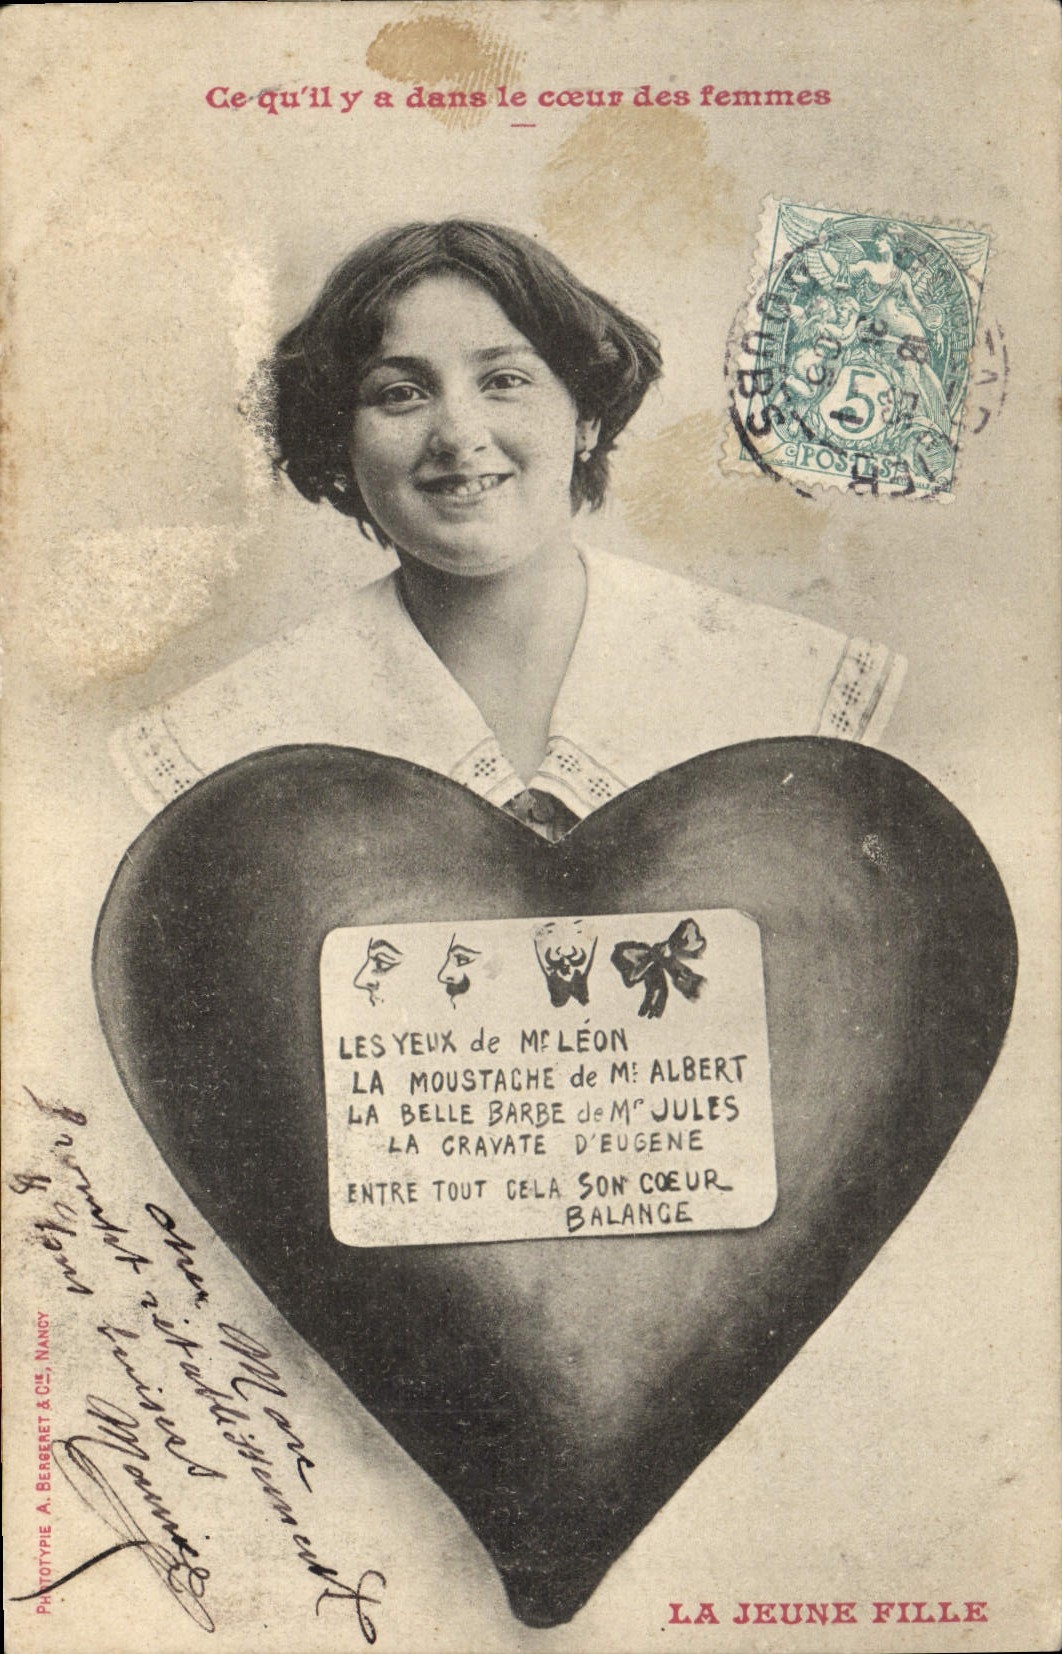 Ce qu'il y a dans le cœur des femmes
5
POSTES
DOUBS
LES YEUX de Mr LÉON
LA MOUSTACHE de Mr ALBERT
LA BELLE BARBE de Mr JULES
LA CRAVATE D'EUGENE
ENTRE TOUT CELA SON CŒUR
BALANCE
mon Marc
prompt rétablissement
baisers
PHOTOTYPIE A. BERGERET & Cie, NANCY
LA JEUNE FILLE